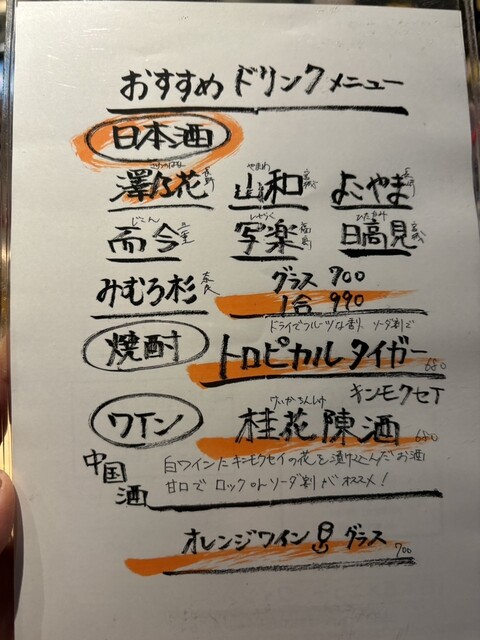 おすすめドリンクメニュー
日本酒
澤乃花 長野 山和 宮城 よこやま 長崎
さわのはな やまわ
而今 三重 写楽 福島 日高見 宮城
じこん しゃらく ひたかみ
みむろ杉 奈良 グラス 700
1合 990
ドライでフルーツな割り ソーダ割で
焼酎 トロピカルタイガー 680
キンモクセイ
ワイン 桂花陳酒 680
けいかちんしゅ
中国酒
白ワインにキンモクセイの花を漬け込んだお酒
甘口で ロック or ソーダ割がオススメ!
オレンジワイン グラス 700